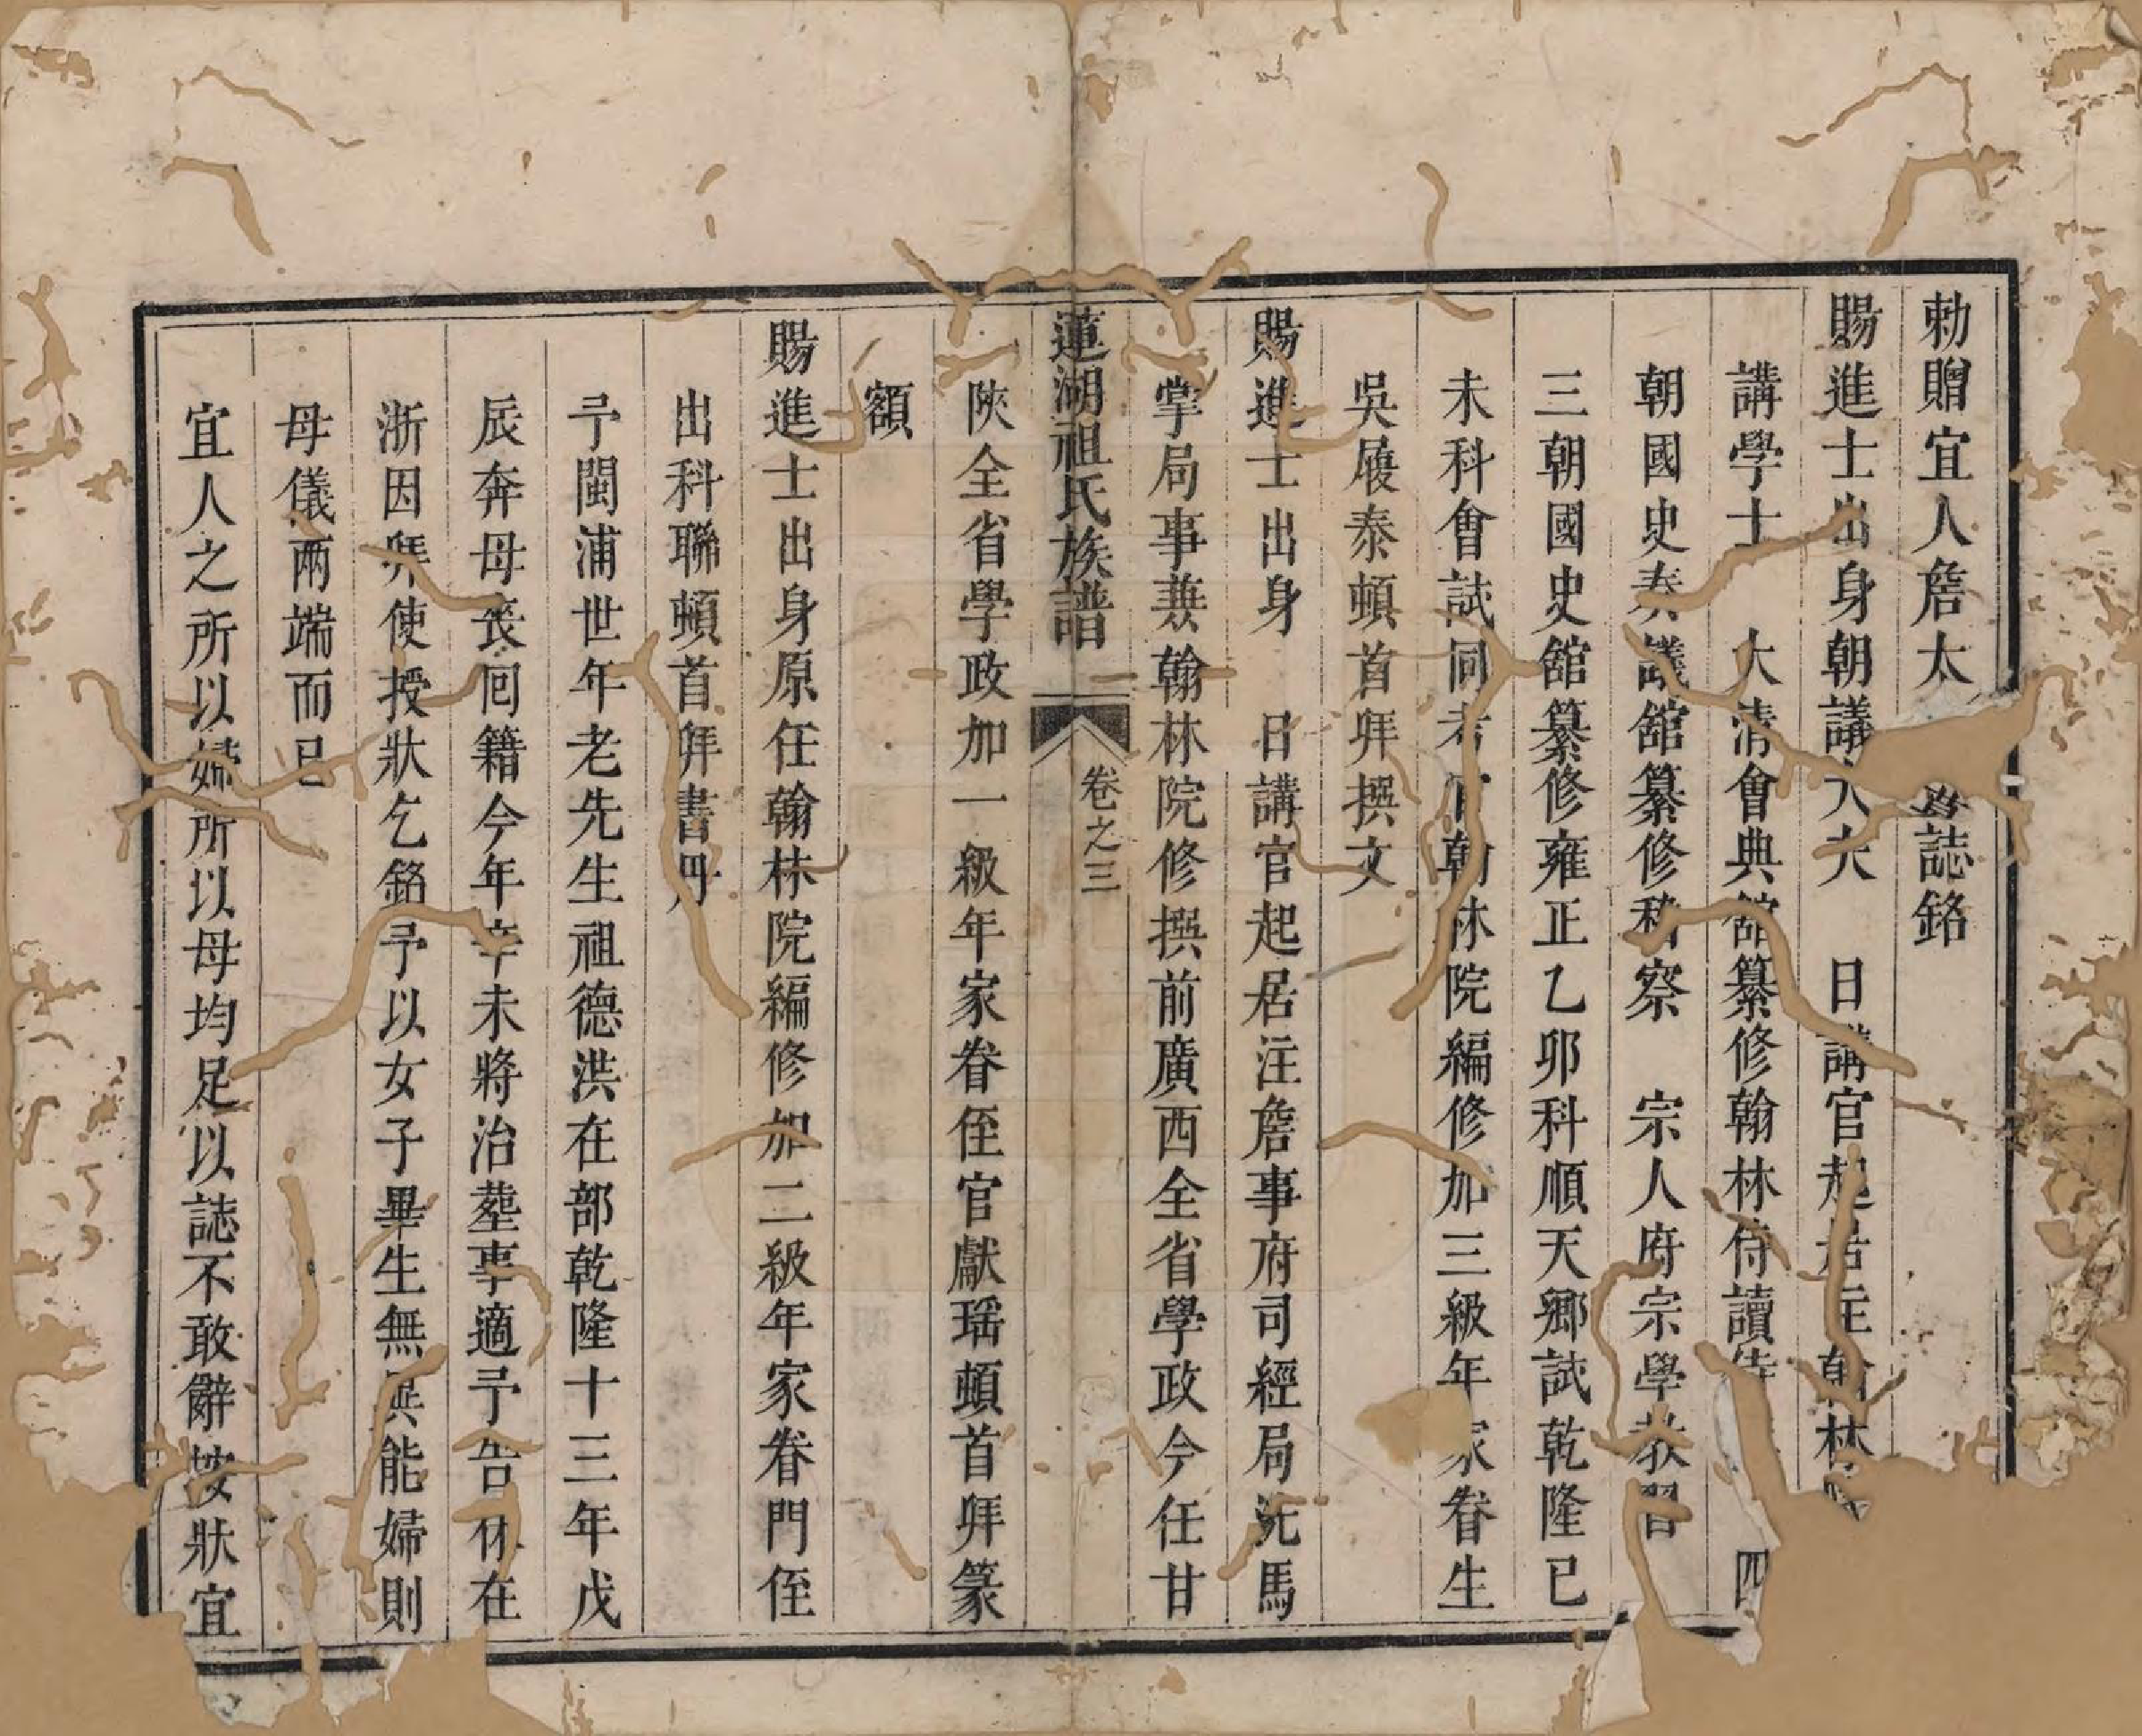 勅贈宜人詹太誌銘
賜進士出身朝議大夫　日講官起居注翰林
講學士　大清會典館纂修翰林侍讀侍　四
朝國史奏議舘纂修稽察　宗人府宗學教習
三朝國史舘纂修雍正乙卯科順天鄉試乾隆己
未科會試同考官翰林院編修加三級年家眷生
吳履泰頓首拜撰文
賜進士出身　日講官起居注詹事府司經局洗馬
掌局事兼翰林院修撰前廣西全省學政今任甘
蓮湖祖氏族譜　卷之三
陝全省學政加一級年家眷侄官獻瑶頓首拜篆
額
賜進士出身原任翰林院編修加二級年家眷門侄
出科聯頓首拜書丹
予閩浦世年老先生祖德洪在部乾隆十三年戊
辰奔母喪囘籍今年辛未將治塟事適予告休在
浙因拜使授狀乞銘予以女子畢生無異能婦則
母儀兩端而已
宜人之所以婦所以母均足以誌不敢辭按狀宜